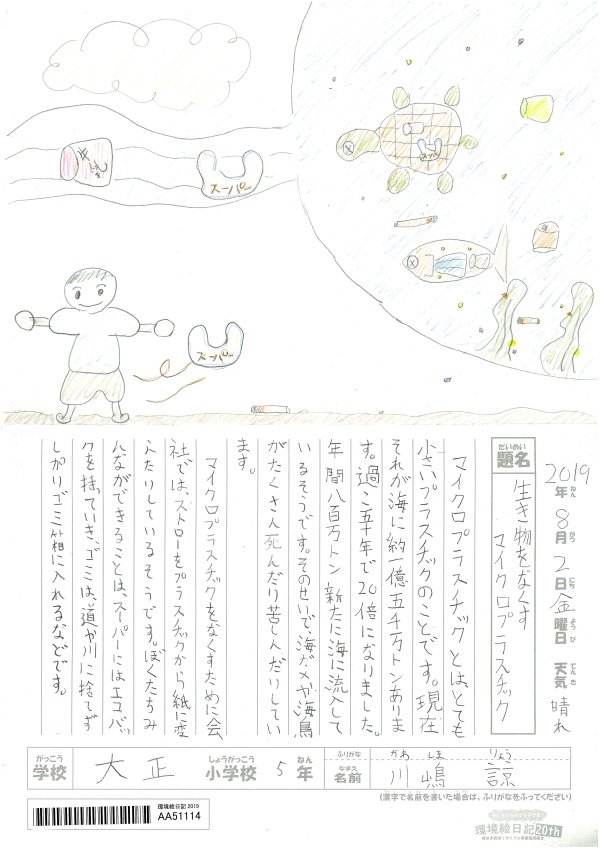 キャンディ
スーパー
スーパー
スーパー
2019年8月2日金曜日 天気 晴れ
ねん がつ にち ようび てんき
だいめい
題名
生き物をなくす
マイクロプラスチック
マイクロプラスチックとは、とても
小さいプラスチックのことです。現在
それが海に約一億五千万トンありま
す。過こ五十年で20倍になりました。
年間八百万トン新たに海に流入して
いるそうです。そのせいで、海ガメや海鳥
がたくさん死んだり苦しんだりしてい
ます。
マイクロプラスチックをなくすために会
社では、ストローをプラスチックから紙に変
えたりしているそうです。ぼくたちみ
んなができることは、スーパーにはエコバッ
クを持っていき、ゴミは、道や川に捨てず
しかりゴミ箱に入れるなどです。
がっこう しょうがっこう ねん ふりがな かわ しま りょう
学校 大正 小学校 5年 なまえ 名前 川嶋 諒
(漢字で名前を書いた場合は、ふりがなをふってください)
環境絵日記 2019
AA51114
環境絵日記 20th